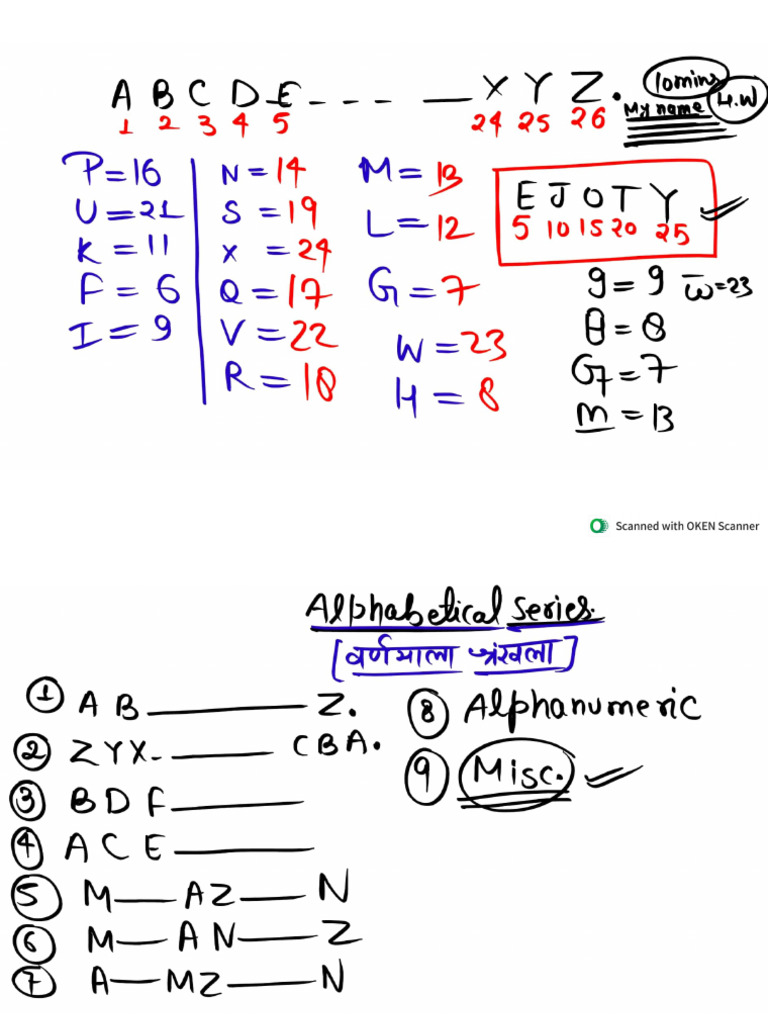 A B C D E - - - — X Y Z.
1 2 3 4 5 24 25 26
10mins
My name H.W
P = 16
U = 21
K = 11
F = 6
I = 9
N = 14
S = 19
X = 24
Q = 17
V = 22
R = 18
M = 13
L = 12
G = 7
W = 23
H = 8
E J O T Y
5 10 15 20 25
9 = 9 w = 23
8 = 8
G7 = 7
m = 13
Scanned with OKEN Scanner
Alphabetical Series.
[वर्णमाला श्रंखला]
① A B ——— Z.
② Z Y X - ——— C B A.
③ B D F ———
④ A C E ———
⑤ M — A Z — N
⑥ M — A N — Z
⑦ A — M Z — N
⑧ Alphanumeric
⑨ Misc.